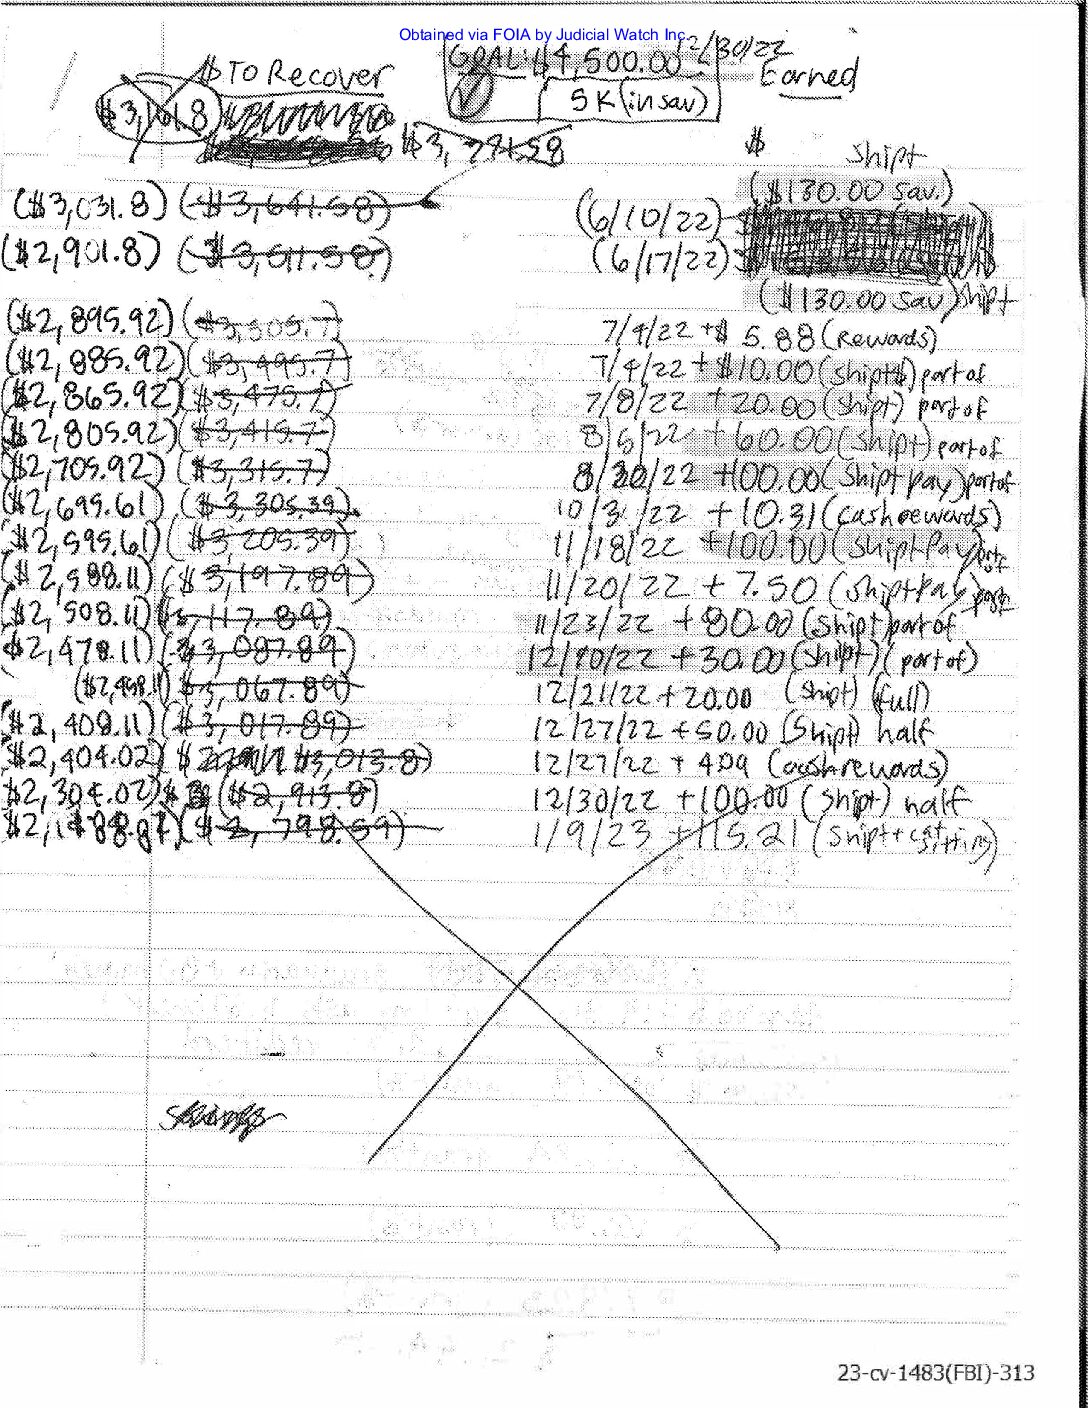 Obtained via FOIA by Judicial Watch Inc.
GOAL: $4,500.00 12/30/22
$ To Recover Earned
5K (in sav)
$3,161.8
$3,771.58
$ Shipt
($130.00 sav.)
($3,031.8) ($3,641.58) (6/10/22)
($2,901.8) ($3,511.58) (6/17/22)
($130.00 sav) Shipt
($2,895.92) ($3,505.7) 7/4/22 +$ 5.88 (Rewards)
($2,885.92) ($3,495.7) 7/4/22 + $10.00 (shipt) part of
($2,865.92) ($3,475.7) 7/8/22 + 20.00 (Shipt) part of
($2,805.92) ($3,415.7) 8/5/22 + 60.00 (Shipt) part of
($2,705.92) ($3,315.7) 8/30/22 +100.00 (Shipt Pay) part of
($2,695.61) ($3,305.39) 10/3 /22 + 10.31 (cash rewards)
($2,595.61) ($3,205.39) 11/18/22 +100.00 (Shipt Pay) part of
($2,588.11) ($3,197.89) 11/20/22 + 7.50 (Shipt Pay) part
($2,508.11) ($3,117.89) 11/23/22 + 80.00 (Shipt) part of
$2,478.11) ($3,087.89) 12/10/22 + 30.00 (Shipt) (part of)
($2,458.11) $3,067.89) 12/21/22 + 20.00 (Shipt) (full)
$2,408.11) ($3,017.89) 12/27/22 + 50.00 (Shipt) half
$2,404.02) $3,013.8) 12/27/22 + 4.09 (cash rewards)
$2,304.02) ($2,913.8) 12/30/22 +100.00 (Shipt) half
($2,798.59) 1/9/23 +115.21 (Shipt + cat sitting)
23-cv-1483(FBI)-313